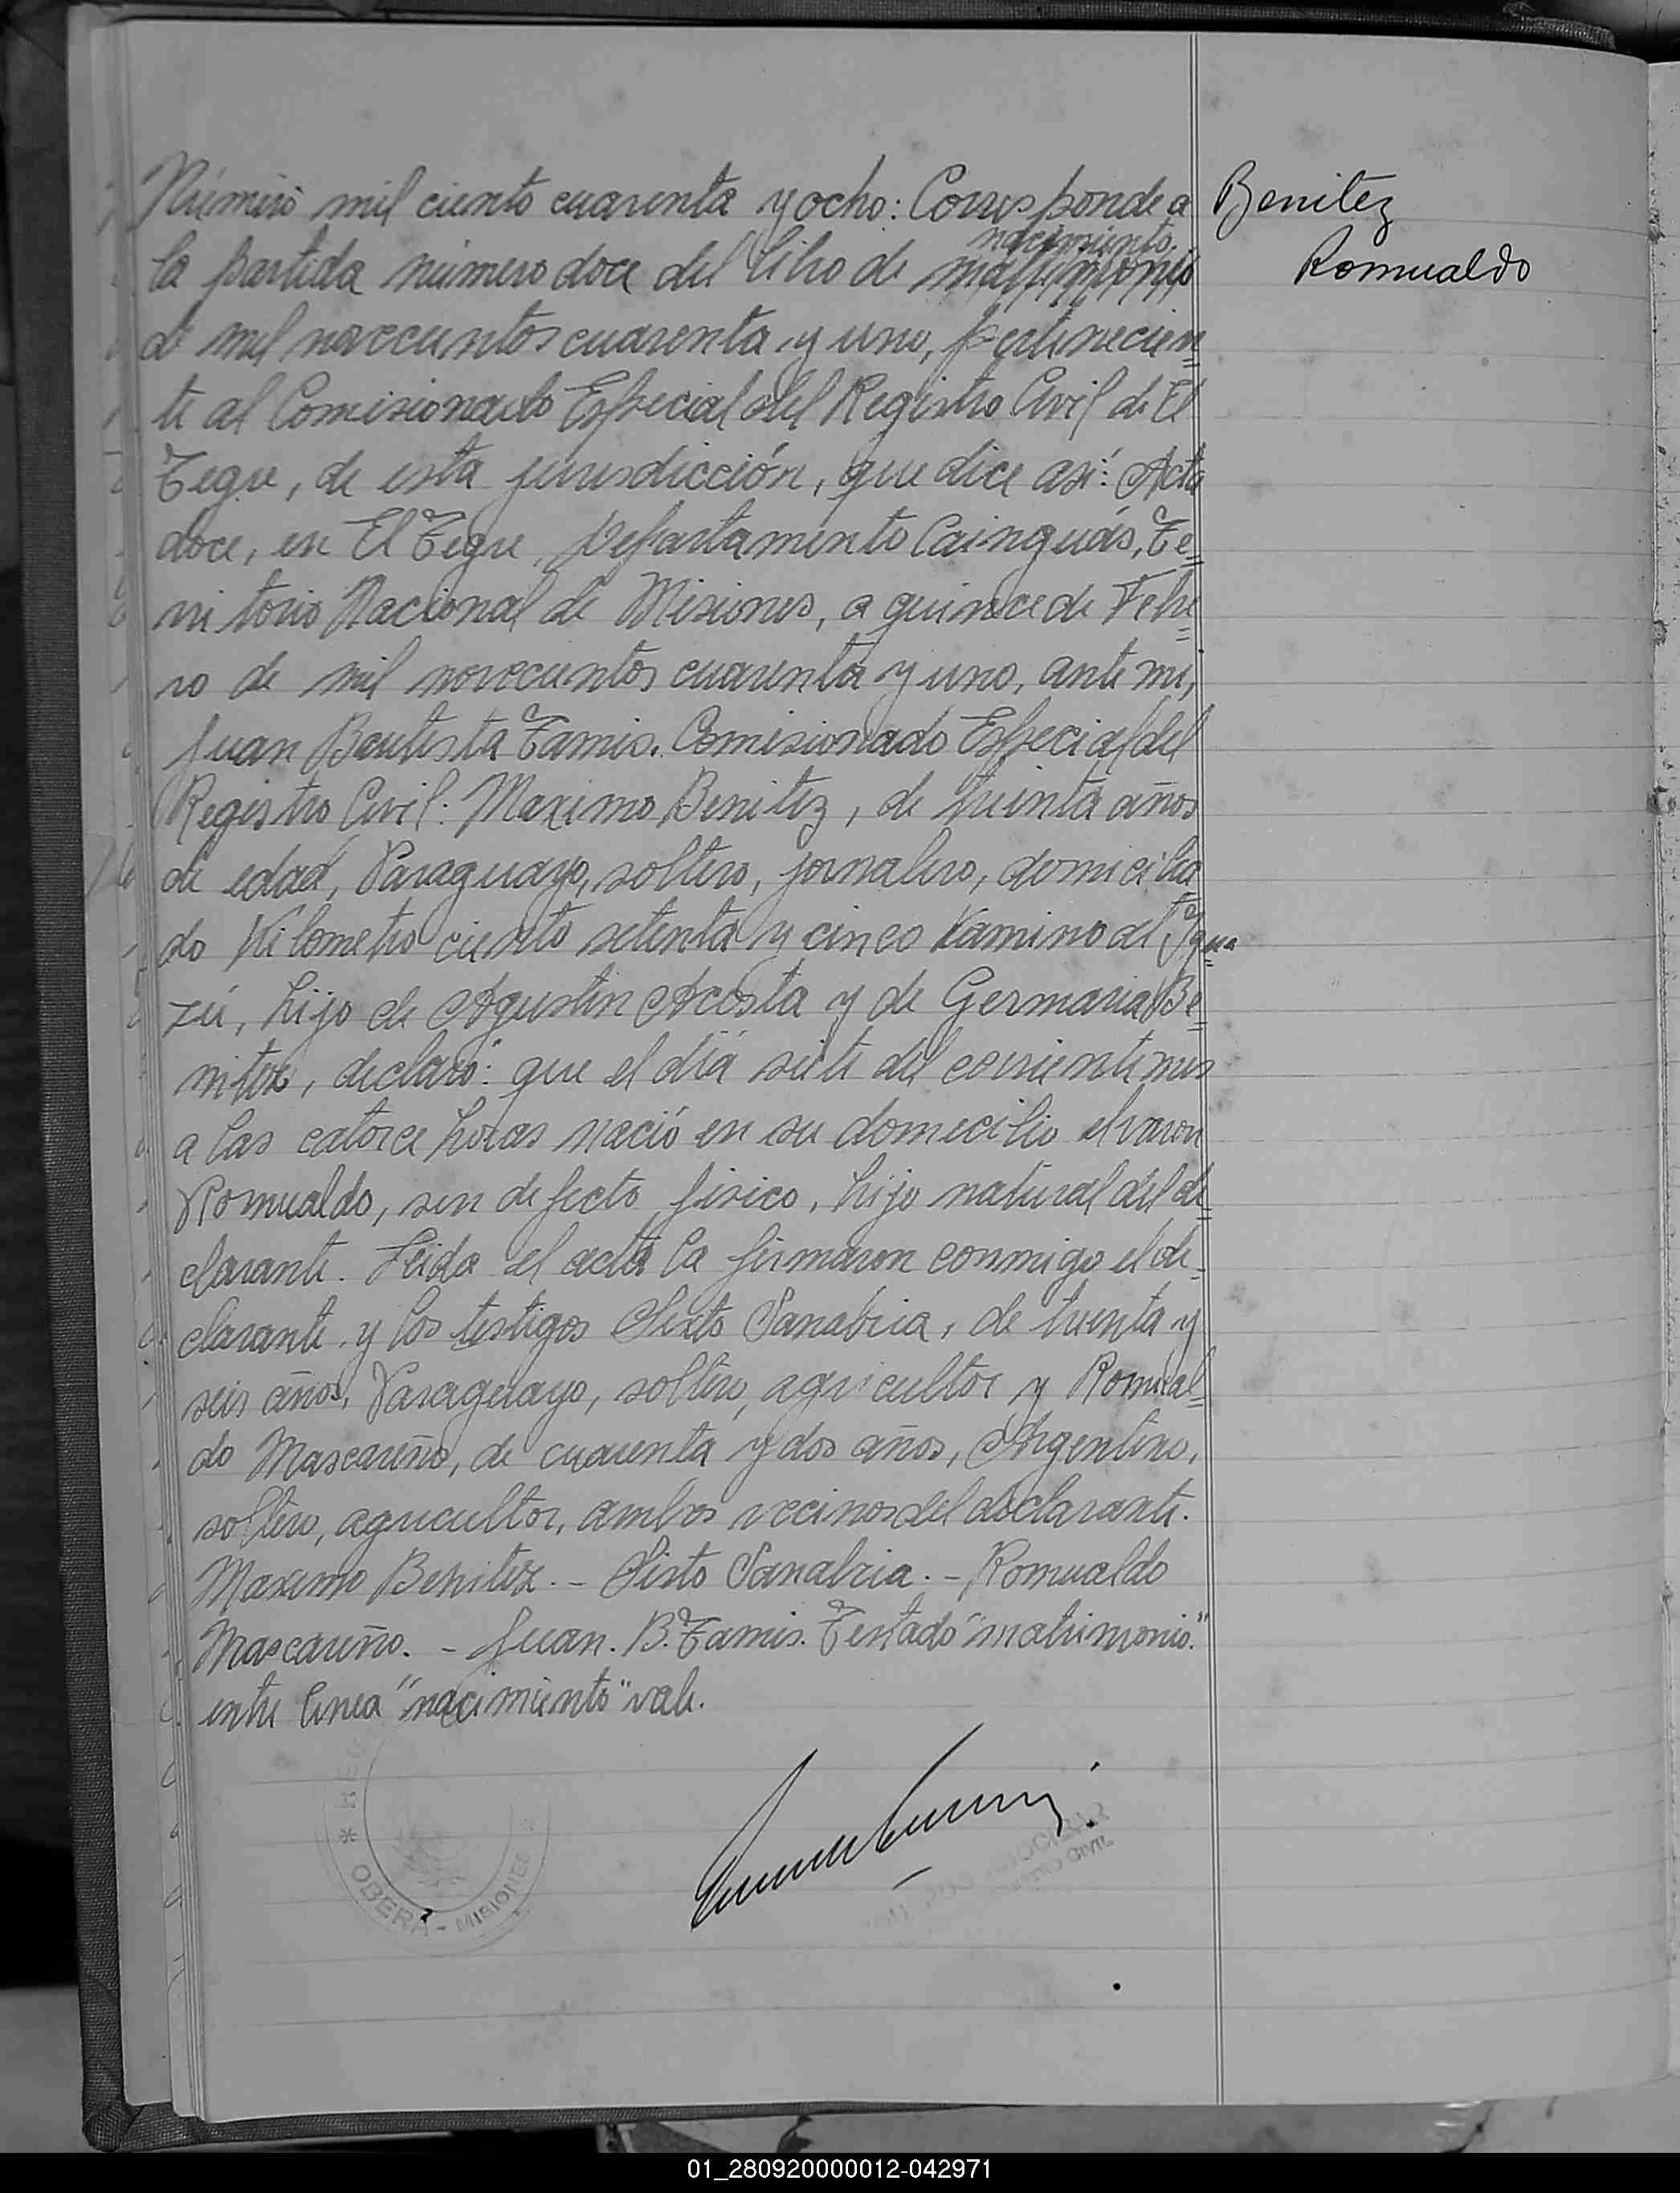 Número mil ciento cuarenta y ocho: Corresponde a
Benitez
Romualdo
nacimiento.
la partida número doce del libro de matrimonio
de mil novecientos cuarenta y uno, pertinecien=
te al Comisionado Especial del Registro Civil de El
Tegre, de esta jurisdicción, que dice asi: Acta
doce, en El Tegre, Departamento Cainguás, Te=
rritorio Nacional de Misiones, a quince de Febre=
ro de mil novecientos cuarenta y uno, ante mi,
Juan Bautista Tamis. Comisionado Especial del
Registro Civil: Maximo Benitez, de treinta años
de edad, Paraguayo, soltero, jornalero, domicilia=
do Kilometro ciento setenta y cinco Kamino del Igua=
zú, hijo de Agustin Acosta y de Germana Be=
nitez, declaró: que el día siete del corriente mes
a las catorce horas nació en su domicilio el varon
Romualdo, sin defecto fisico, hijo natural del de=
clarante. Leida el acta la firmaron conmigo el de=
clarante y los testigos Sixto Sanabria, de treinta y
seis años, Paraguayo, soltero, agricultor y Romual=
do Mascareño, de cuarenta y dos años, Argentino,
soltero, agricultor, ambos vecinos del declarante.
Maximo Benitez. - Sisto Sanabria. - Romualdo
Mascareño. - Juan. B. Tamis. Testado "matrimonio."
entre linea "nacimiento" vale.
* OBERÁ - MISIONES *
01_280920000012-042971